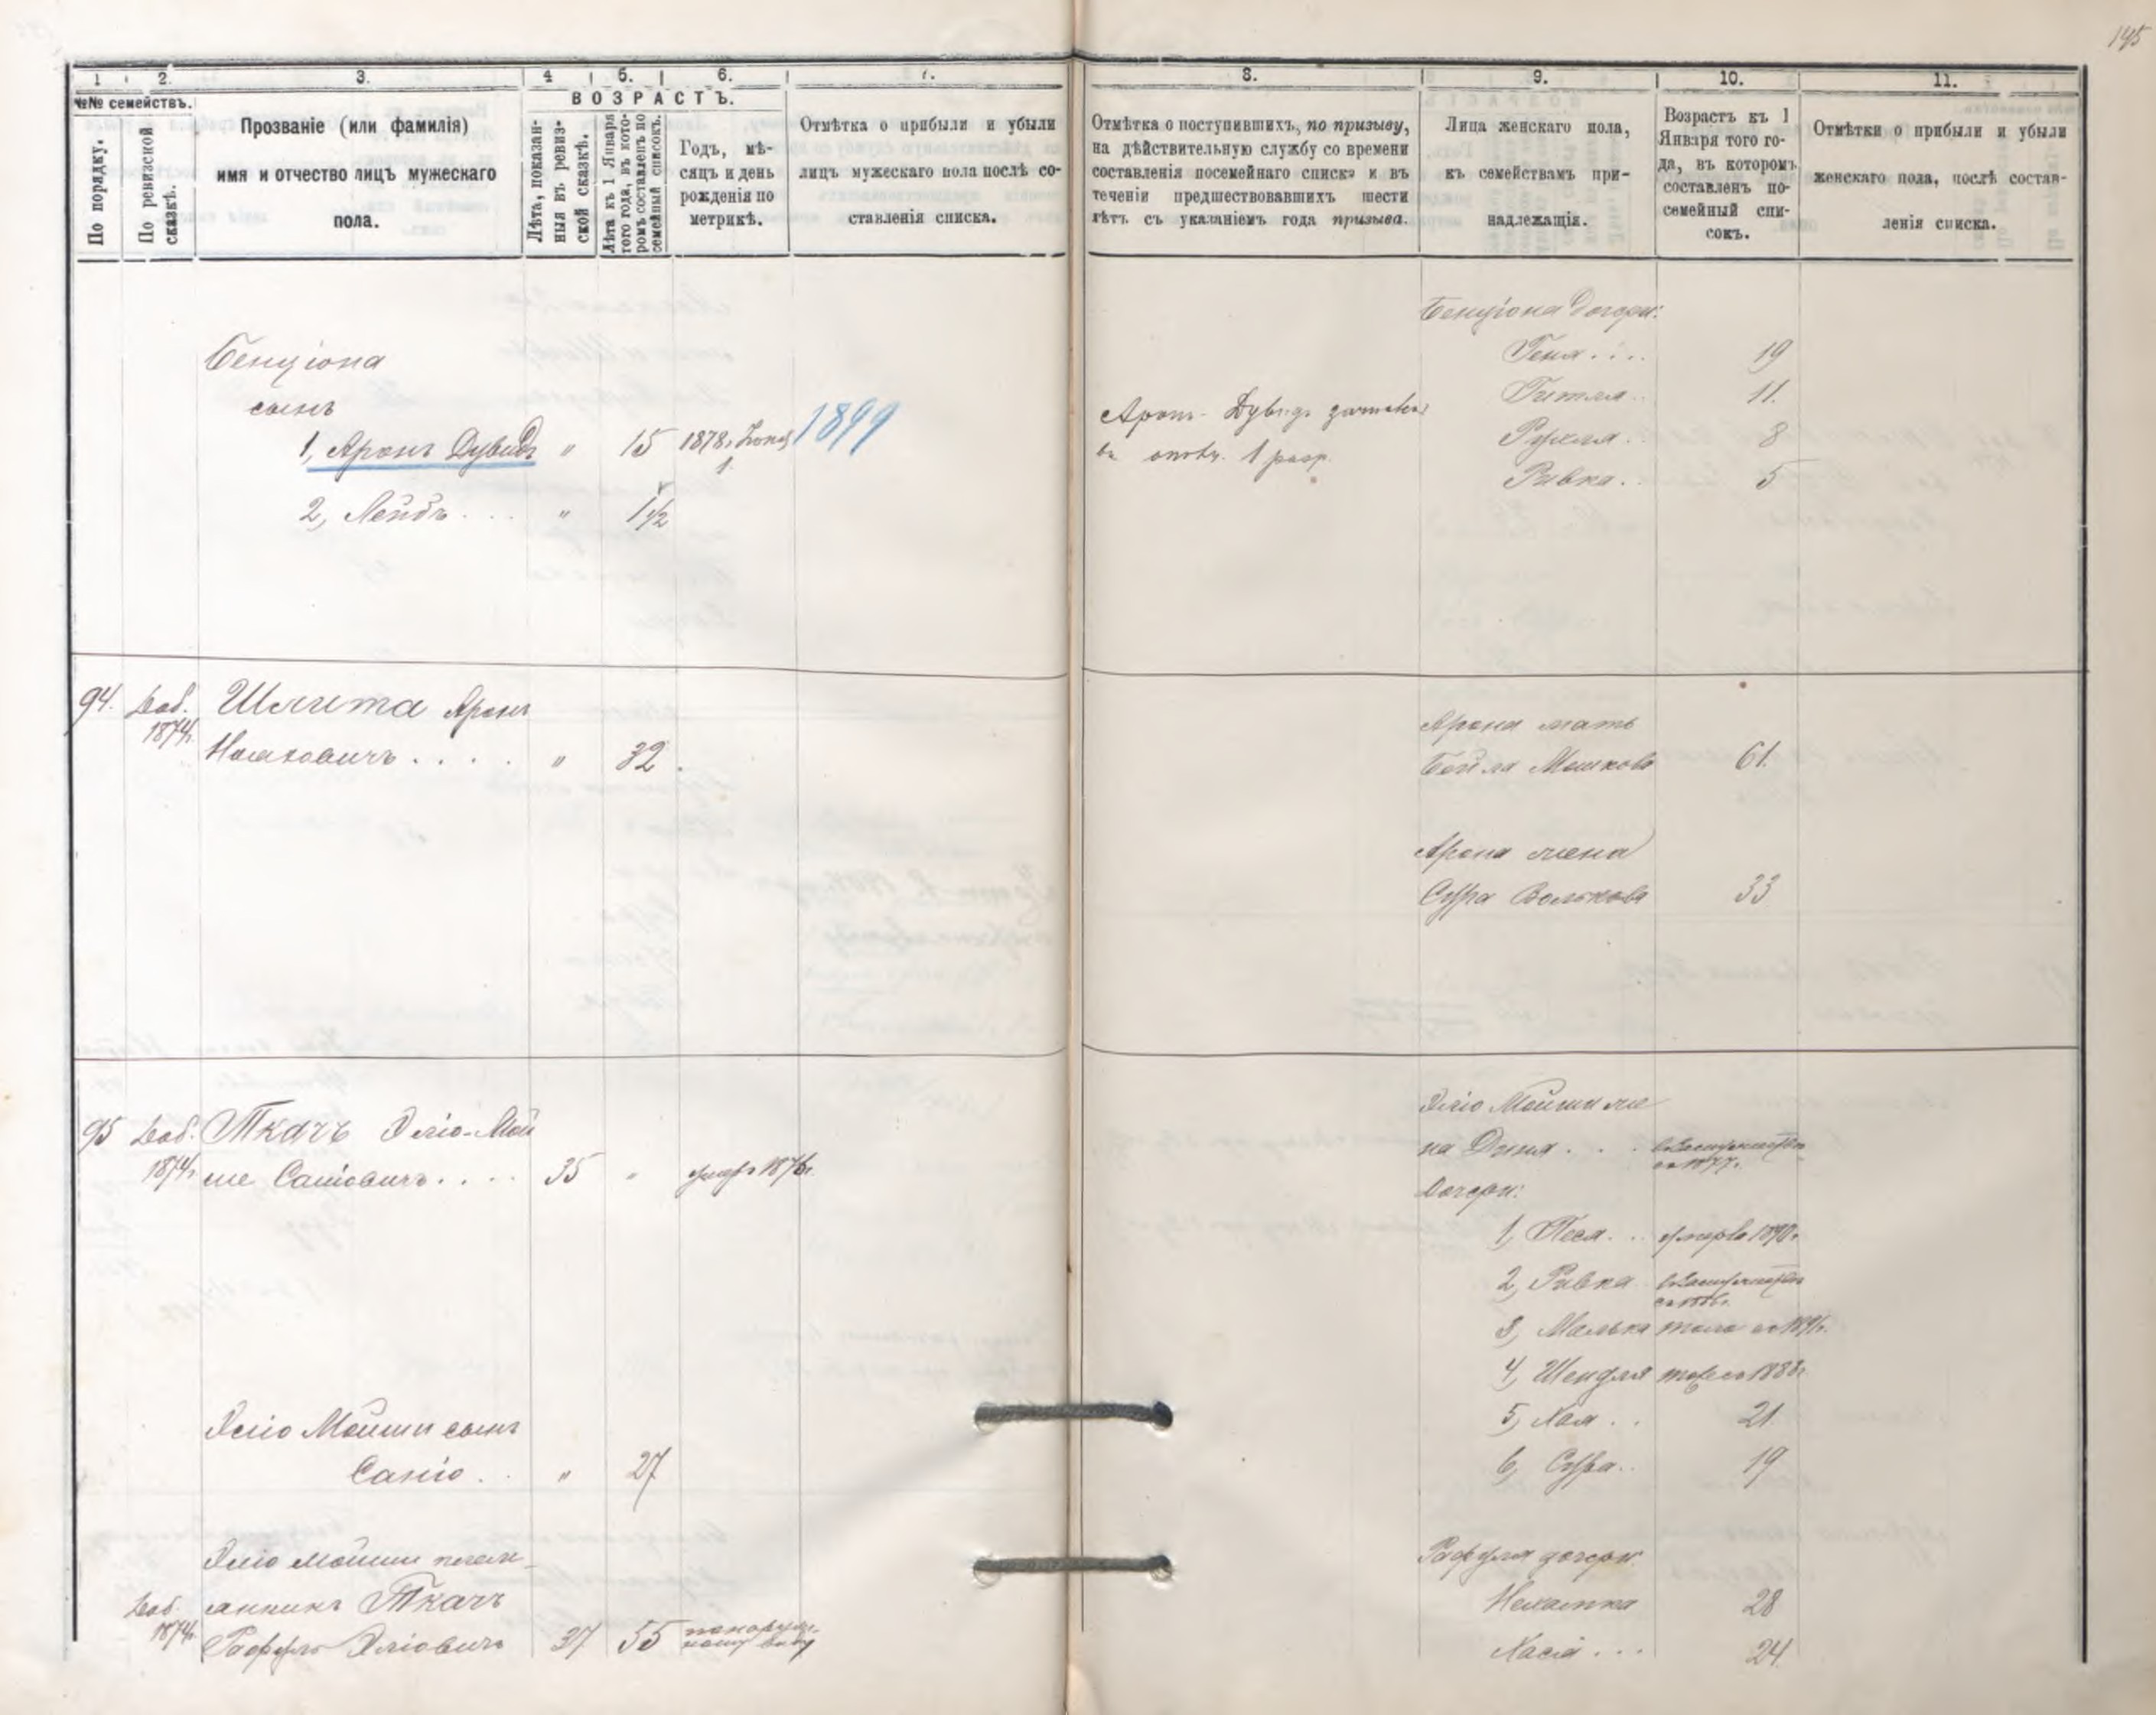 195
1
2.
3.
4
5.
6.
7.
№№ семействъ.
По порядку.
По ревизской сказкѣ.
Прозваніе (или фамилія)
имя и отчество лицъ мужескаго
пола.
ВОЗРАСТЪ.
Лѣта, показан-
ныя въ ревиз-
ской сказкѣ.
Лѣта къ 1 Января
того года, въ кото-
ромъ составленъ по
семейный списокъ.
Годъ, мѣ-
сяцъ и день
рожденія по
метрикѣ.
Отмѣтка о прибыли и убыли
лицъ мужескаго пола послѣ со-
ставленія списка.
Бенціона
сынъ
1, Аронъ Дувидъ " 15 1878 г. 1899
1.
2, Лейбъ . . . " 1 1/2
94. Доб. Шлита Аронъ
1874 г.
. . . . " 32.
95 Доб. Ткачъ Эліо-Мой
1874 г. ше Саніовичъ. . . . 35 " умеръ 1876 г.
Эліо Мойши сынъ
Саніо . . " 27
Эліо Мойши племян-
Доб. анникъ Ткачъ
1874 г. Эліовичъ 37 55 по наруж-
ному виду
8.
9.
10.
11.
Отмѣтка о поступившихъ, по призыву,
на дѣйствительную службу со времени
составленія посемейнаго списка и въ
теченіи предшествовавшихъ шести
лѣтъ съ указаніемъ года призыва.
Лица женскаго пола,
къ семействамъ при-
надлежащія.
Возрастъ къ 1
Января того го-
да, въ которомъ
составленъ по-
семейный спи-
сокъ.
Отмѣтки о прибыли и убыли
женскаго пола, послѣ состав-
ленія списка.
Бенціона дочери:
Геня . . . . 19
Гитля . . 11.
Аронъ-Дувидъ
Рухля . . 8
въ ополч. 1 разр.
Ривка . . 5
Арона мать
Бейла Мошкова 61.
Арона жена
Сура Волькова 33
Эліо Мойши же
на . . . въ замужествѣ
съ 1877 г.
Дочери:
1, Песя . . умерла 1890 г.
2, Ривка въ замужествѣ
3, Малька тоже съ 1891 г.
4, Шендля тоже съ 1888 г.
5, Хая . . 21
6, Сура . . 19
дочери
Нехамка 28
Хася . . . 24.